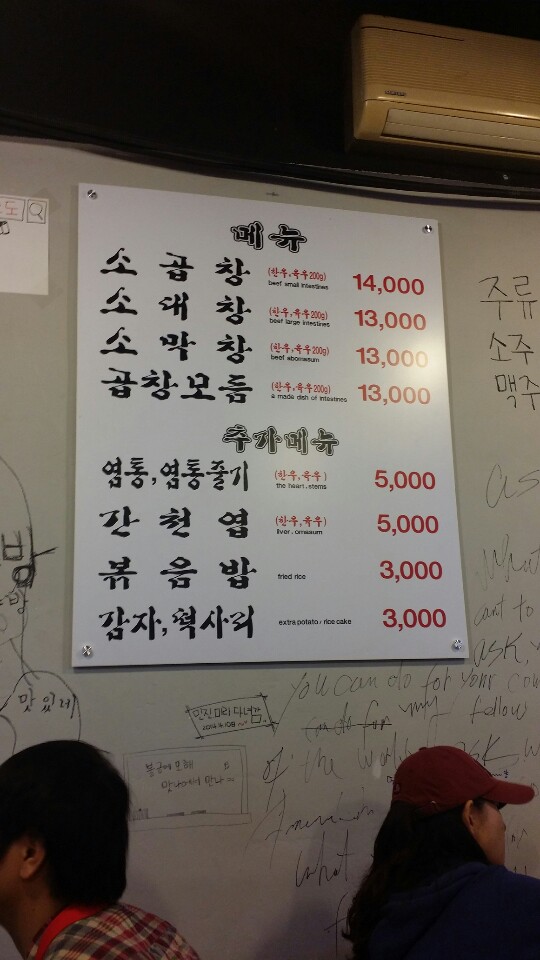 메뉴
소 곱 창 (한우,육우200g) beef small intestines 14,000
소 대 창 (한우,육우200g) beef large intestines 13,000
소 막 창 (한우,육우200g) beef abomasum 13,000
곱창모듬 (한우,육우200g) a made dish of intestines 13,000
추가메뉴
염통,염통줄기 (한우,육우) the heart. stems 5,000
간 천 엽 (한우,육우) liver. omasum 5,000
볶 음 밥 fried rice 3,000
감자,떡사리 extra potato / rice cake 3,000
주류
소주
맥주
as
What
cant to
ask,
you can do for your cou
my fellow
of the world ask
what
맛있네
인진미리다녀감